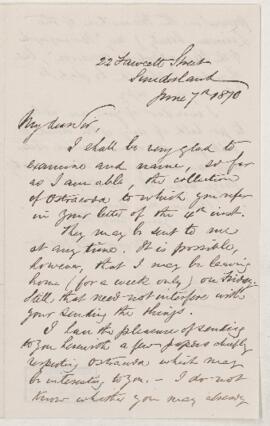 22 Fawcett Street
Sunderland
June 7th 1870
My dear Sir,
I shall be very glad to
examine and name, so far
as I am able, the collection
of Ostracoda to which you refer
in your letter of the 4th inst.
They may be sent to me
at any time. It is possible,
however, that I may be leaving
home (for a week only) on Friday.
Still that need not interfere with
your sending the things.
I have the pleasure of sending
to you herewith a few papers chiefly
respecting Ostracoda which may
be interesting to you. – I do not
know whether you may already